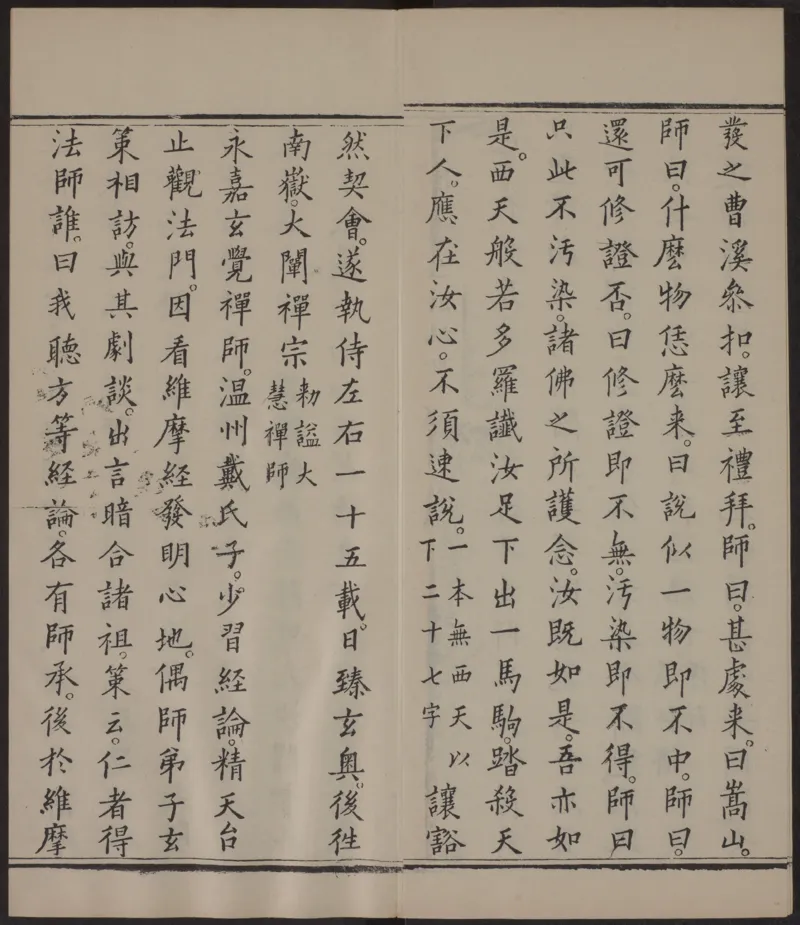 發之曹溪叅扣。讓至禮拜。師曰。甚處来。曰嵩山。
師曰。什麽物恁麽来。曰說似一物即不中。師曰。
還可修證否。曰修證即不無。汚染即不得。師曰
只此不汚染。諸佛之所護念。汝既如是。吾亦如
是。西天般若多羅讖汝足下出一馬駒。踏殺天
下人。應在汝心。不須速說。一本無西天以下二十七字讓豁
然契會。遂執侍左右一十五載。日臻玄奧。後往
南嶽。大闡禪宗勑謚大慧禪師
永嘉玄覺禪師。温州戴氏子。少習經論。精天台
止觀法門。因看維摩經發明心地。偶師弟子玄
策相訪。與其劇談。出言暗合諸祖。策云。仁者得
法師誰。曰我聽方等經論。各有師承。後於維摩